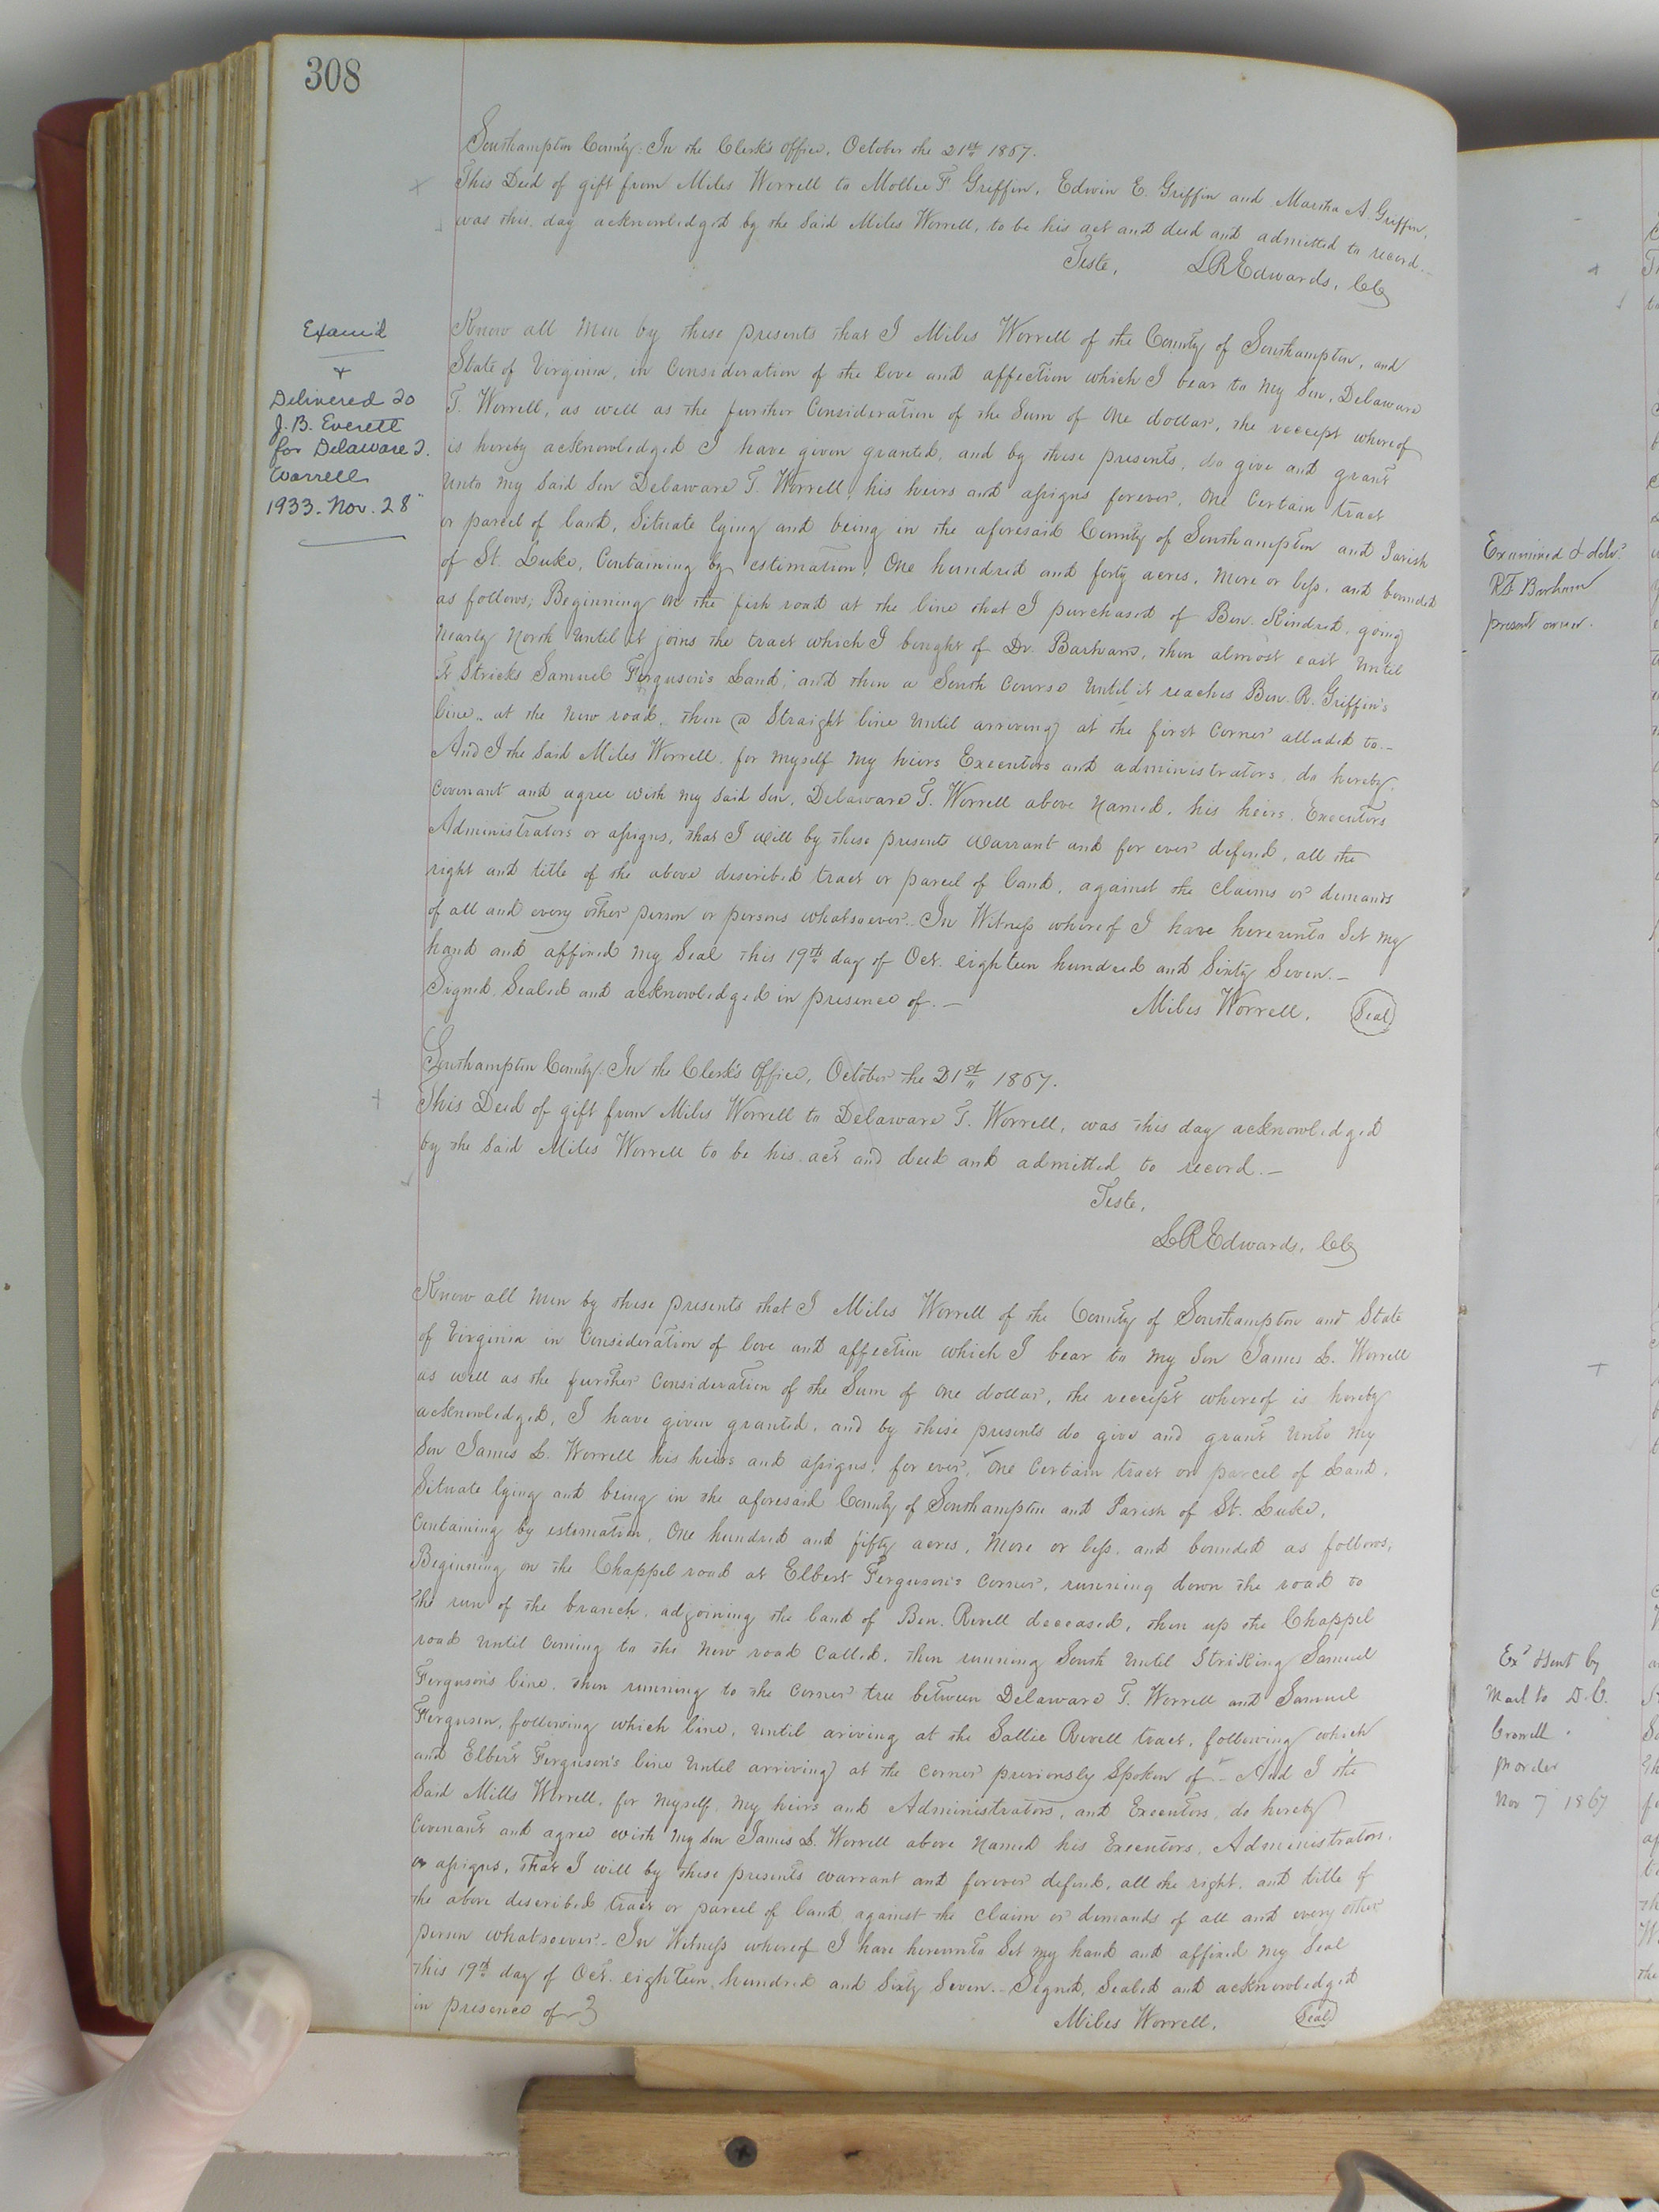 308
Southampton County: In the Clerk's Office, October the 21st 1867.
This Deed of gift from Miles Worrell to Mollie F Griffin, Edwin E. Griffin and Martha A. Griffin,
was this day acknowledged by the said Miles Worrell, to be his act and deed and admitted to record.
Teste, LREdwards, CC
Exam'd
+
Delivered to
J. B. Everett
for Delaware T.
Worrell
1933. Nov. 28"
Know all Men by these presents that I Miles Worrell of the County of Southampton, and
State of Virginia, in Consideration of the love and affection which I bear to my Son, Delaware
T. Worrell, as well as the further Consideration of the Sum of One dollar, the receipt whereof
is hereby acknowledged I have given granted, and by these presents, do give and grant
Unto my said Son Delaware T. Worrell, his heirs and assigns forever, One Certain tract
or parcel of land, Situate lying and being in the aforesaid County of Southampton and Parish
of St. Luke, Containing by estimation, One hundred and forty acres, More or less, and bounded
as follows; Beginning on the fish road at the line that I purchased of Ben. Kindred, going
nearly North Until it joins the tract which I bought of Dr. Barham, then almost east Until
It Stricks Samuel Ferguson's Land, and then a South Course Until it reaches Ben. R. Griffin's
line, at the New road, then a Straight line Until arriving at the first Corner alluded to.-
And I the Said Miles Worrell, for myself my heirs Executors and administrators, do hereby
Covenant and agree with my said Son, Delaware T. Worrell above Named, his heirs, Executors
Administrators or assigns, that I will by these presents Warrant and for ever defend, all the
right and title of the above described tract or parcel of land, against the Claims or demands
of all and every other person or persons whatsoever. In Witness whereof I have hereunto Set my
hand and affixed my Seal this 19th day of Oct. eighteen hundred and Sixty Seven.-
Signed Sealed and acknowledged in presence of.- Miles Worrell, (Seal)
Southampton County: In the Clerk's Office, October the 21st 1867.
This Deed of gift from Miles Worrell to Delaware T. Worrell, was this day acknowledged
by the said Miles Worrell to be his act and deed and admitted to record.-
Teste,
LREdwards, CC
Know all Men by these presents that I Miles Worrell of the County of Southampton and State
of Virginia in Consideration of love and affection which I bear to my Son James L. Worrell
as well as the further Consideration of the Sum of One dollar, the receipt whereof is hereby
acknowledged, I have given granted, and by these presents do give and grant Unto my
Son James L. Worrell his heirs and assigns, for ever, One Certain tract or parcel of Land,
Situate lying and being in the aforesaid County of Southampton and Parish of St. Luke,
Containing by estimation, One hundred and fifty acres, More or less, and bounded as follows,
Beginning on the Chappel road at Elbert Ferguson's Corner, running down the road to
the run of the branch, adjoining the land of Ben. Revell deceased, then up the Chappel
road Until Coming to the New road Called, then running South Until Striking Samuel
Ferguson's line, then running to the Corner tree between Delaware T. Worrell and Samuel
Ferguson, following which line, until ariving at the Sallie Revell tract, following which
and Elbert Ferguson's line Until arriving at the Corner previously Spoken of - And I the
Said Mills Worrell, for myself, my heirs and Administrators, and Executors, do hereby
Covenant and agree with my Son James L. Worrell above Named his Executors, Administrators,
or assigns, that I will by these presents warrant and forever defend, all the right, and title of
the above described tract or parcel of land against the Claim or demands of all and every other
person whatsoever.- In Witness whereof I have hereunto Set my hand and affixed my Seal
this 19th day of Oct. eighteen hundred and Sixty Seven.- Signed, Sealed and acknowledged
in presence of } Miles Worrell, (Seal)
Examined & deld.
present owner.
Exd & sent by
Mail to D. C.
pr order
Nov 7 1867